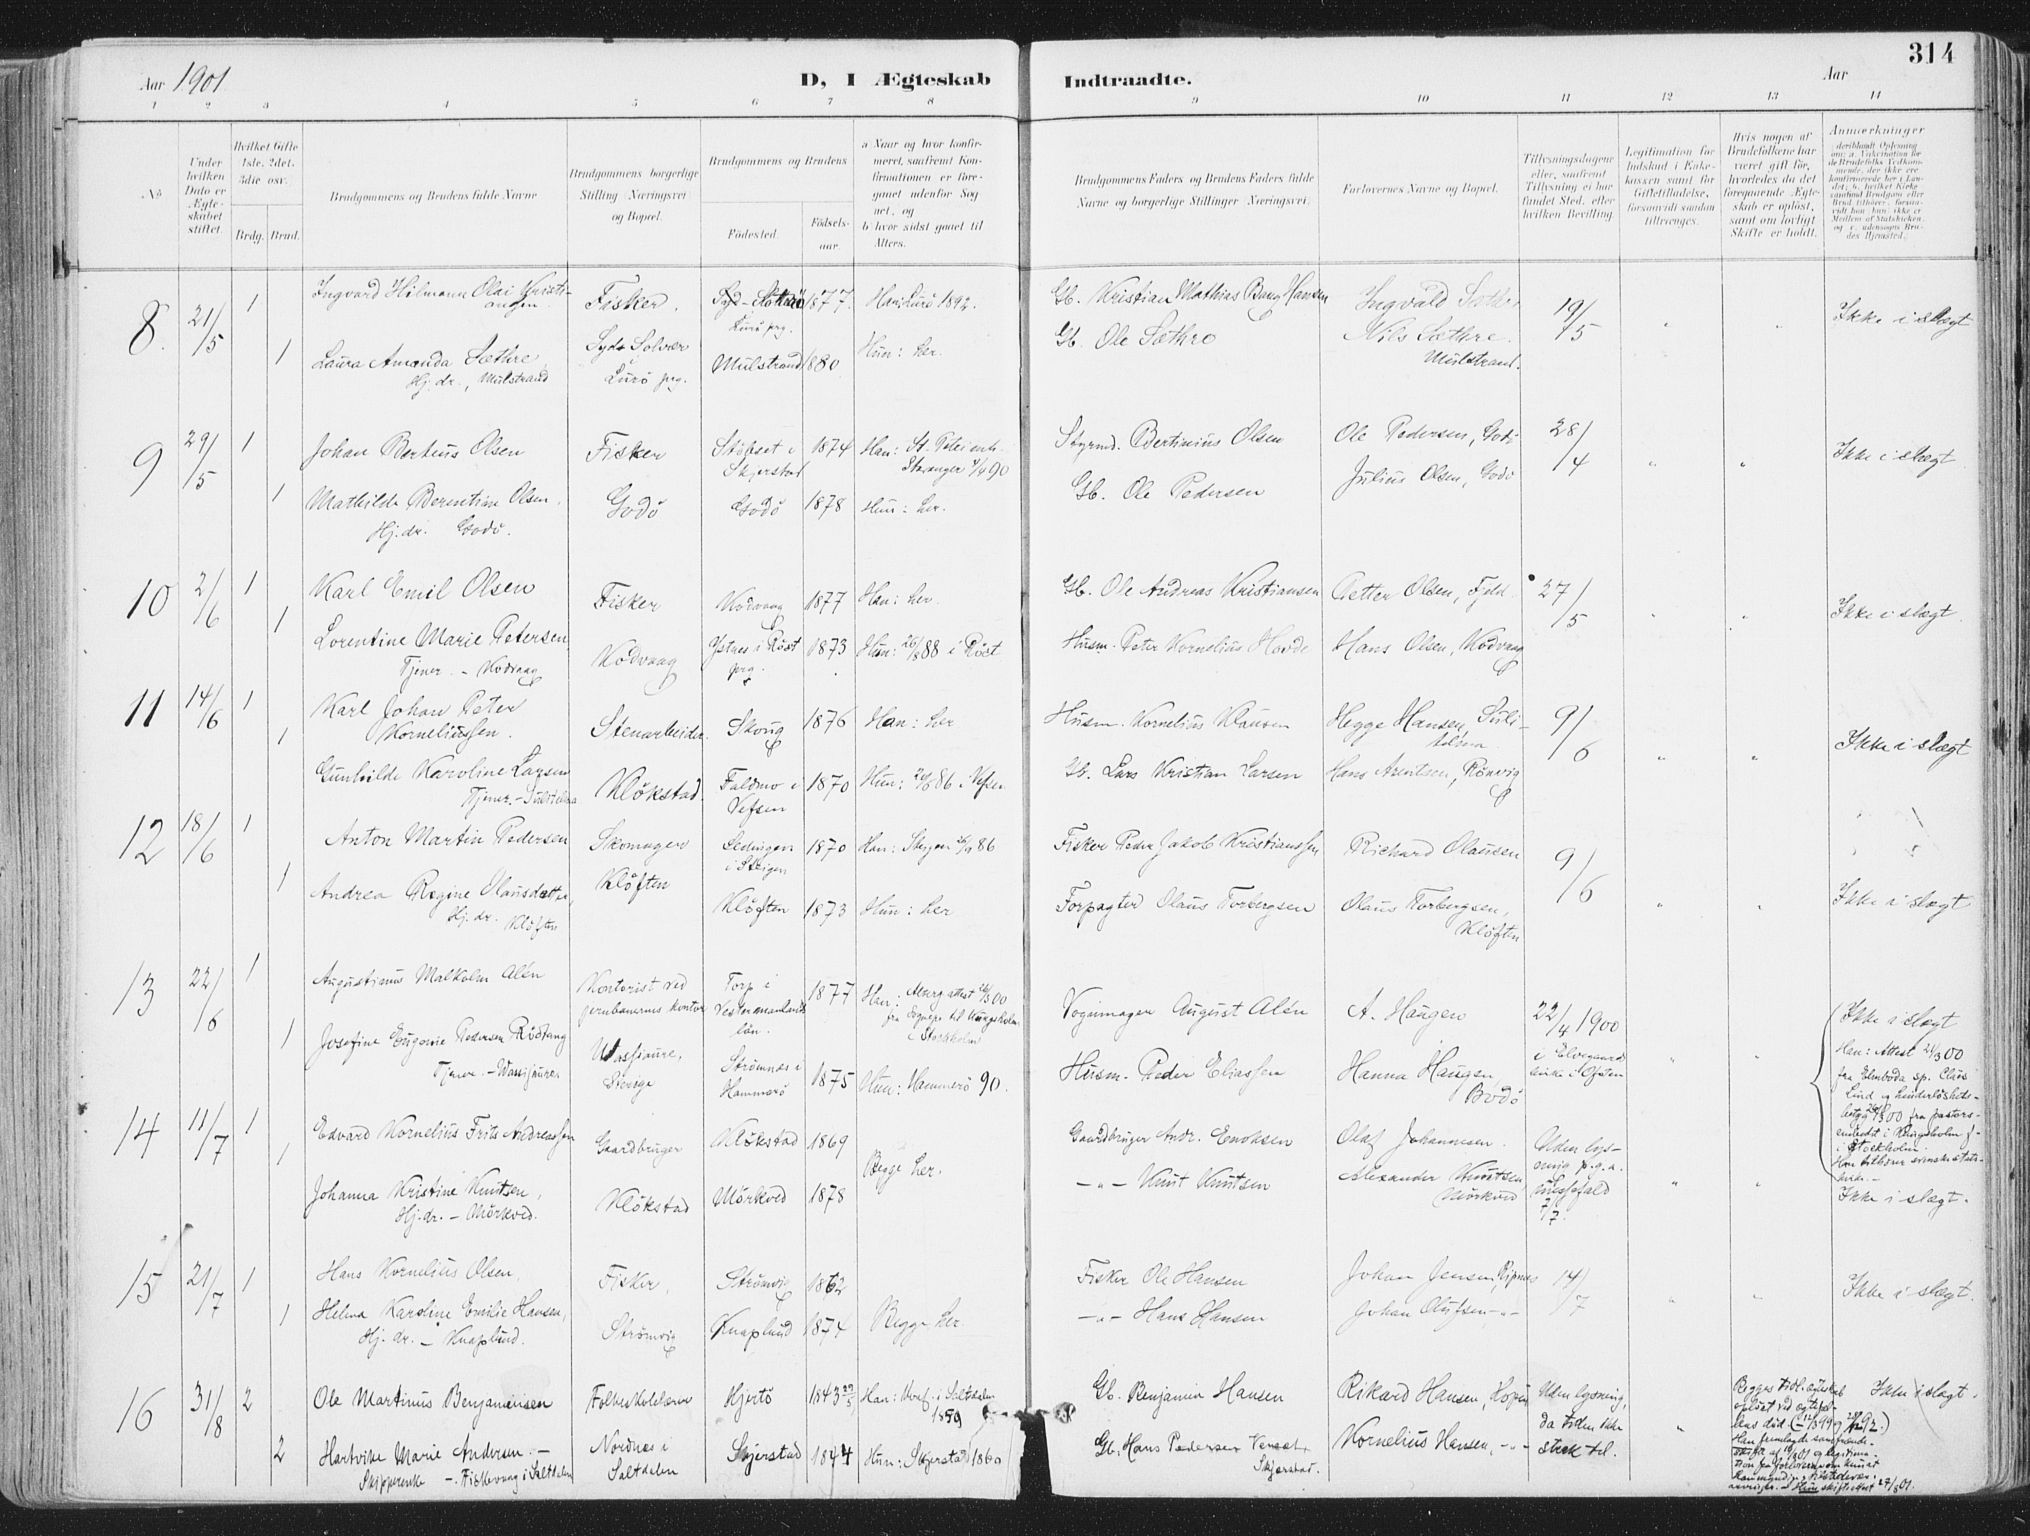 314
Aar 1901
D, I Ægteskab
Indtraadte.
Aar
1 2 3 4 5 6 7 8 9 10 11 12 13 14
No
Under hvilken Dato er Ægteskabet stiftet.
Hvilket Gifte 1ste. 2det. 3die osv.
Brdg. Brud.
Brudgommens og Brudens fulde Navne
Brudgommens borgerlige Stilling Næringsvei og Bopæl.
Brudgommens og Brudens
Födested.
Födsels-aar.
a Naar og hvor konfirmeret, saafremt Konfirmationen er foregaaet udenfor Sognet, og
b hvor sidst gaaet til Alters.
Brudgommens Faders og Brudens Faders fulde Navne og borgerlige Stillinger Næringsvei.
Forlovernes Navne og Bopæl.
Tillysningsdagene eller, saafremt Tillysning ei har fundet Sted, efter hvilken Bevilling.
Legitimation for Indskud i Enkekassen samt for Giftetilladelse, forsaavidt saadan tiltrænges.
Hvis nogen af Brudefolkene har været gift för, hvorledes da det foregaaende Ægteskab er oplöst, samt om lovligt Skifte er holdt.
Anmærkninger
8. 21/5 1
Ingvard Hilmann Olai Kristiansen
Fisker.
Lurö prg.
1877.
Han: Lurö 1892.
Gb. Kristian Mathias Bang Hansen
Ingvald Sæthre
19/5
Ikke i slægt
1 Laura Amanda Sæthre
Hj. dr., Mulstrand
Syd Solvær
Lurö prg.
Mulstrand 1880
Hun: her.
Gb. Ole Sæthre
Nils Sæthre
Mulstrand.
9 29/5 1
Johan Berteus Olsen
Fisker
Skjerstad
1874
Stavanger
90
Styrmd. Bertinius Olsen
Ole Pedersen, Godö
28/4
Ikke i slægt
1 Mathilde Berentine Olsen.
Hj. dr. Godö.
Godö
Godö
1878
Hun: her.
Gb. Ole Pedersen
Julius Olsen, Godö
10 2/6 1
Karl Emil Olsen
Fisker
Kodvaag
1877
Han: her.
Gb. Ole Andreas Kristiansen
Petter Olsen, Fjeld.
27/5
Ikke i slægt.
1 Lorentine Marie Petersen
Tjener. - Kodvaag
Kodvaag
Ystnes i Röst prg.
1873
Hun: 26/8 88 i Röst
Husm. Peter Kornelius Hovde
Hans Olsen, Kodvaag
11 14/6 1
Karl Johan Peter Korneliussen.
Stenarbeider.
Skoug
1876
Han: her
Husm. Kornelius Klausen
Hegge Hansen, Sulitelma
9/6
Ikke i slægt
1 Gunhilde Karoline Larsen
Tjener. - Sulitelma
Klökstad.
Faldmo i Vefsen
1870
Hun: 86 i Vefsen
Gb. Lars Kristian Larsen
Hans Arntsen, Rönvig
12 18/6 1
Anton Martin Pedersen
Skomager
i Steigen
1870
Han: Steigen 86
Fisker Peder Jakob Kristianssen
Richard Olausen
9/6
Ikke i slægt
1 Andrea Regine Olausdatter,
Hj. dr. Klöften
Klöften
Klöften
1873
Hun: her
Forpagter Olaus Torbergsen
Olaus Torbergsen,
Klöften
13 22/6 1
Augustinus Malkolm Alén
Kontorist ved jernbanernes kontor
Torp i Vestermanlands län.
1877
fra til Kungsholm
i Stockholm
Vognmager August Alén
A. Haugen
22/4 1900
Ikke i slægt
Han: Attest 24/3 00
1 Josefine Eugenie Pedersen Rödtang
Tjener. - Wassijaure
Wassijaure,
Sverige
Strömnæs i Hammerö
1875
Hun: Hammerö 90.
Husm. Peder Eliassen
Hanna Haugen
Bodö
i Stockholm.
14 11/7 1
Edvard Kornelius Frits Andreassen
Gaardbruger
Klökstad
1869
Begge her.
Gaardbruger Andr. Enoksen
Olaf Johannesen.
Uden lysning p.g.a.
7/7.
1 Johanna Kristine Knutsen,
Hj. dr. - Mörkved.
Klökstad
Mörkved
1878
- " - Knut Knutsen
Alexander Knutsen
Mörkved
Ikke i slægt.
15 21/7 1
Hans Kornelius Olsen,
Fisker,
Strömvig
1862
Begge her.
Fisker Ole Hansen
Johan Jensen, Ripnes
14/7
Ikke i slægt.
1 Helma Karoline Emilie Hansen,
Hj. dr. - Knaplund.
Strömvig
Knaplund
1874
- " - Hans Hansen
Johan Olufsen - " -
16 31/8 2
Ole Martinus Benjaminsen
Folkeskolelærer
Hjertö
1843
Han: Konf. i Saltdalen 1859
Gb. Benjamin Hansen
Rikard Hansen, Kopen
Uden lysning,
da tiden ikke
strak til.
Begges tidl. ægteskab
oplöst ved
Ikke i slægt.
2 Hartvikke Marie Andersen -
Skipperenke - Fiskevaag i Saltdalen
Nordnes i Saltdalen
Skjerstad
1844
Hun: Skjerstad 1860
Gb. Hans Pedersen
Skjerstad.
Kornelius Hansen, - " -